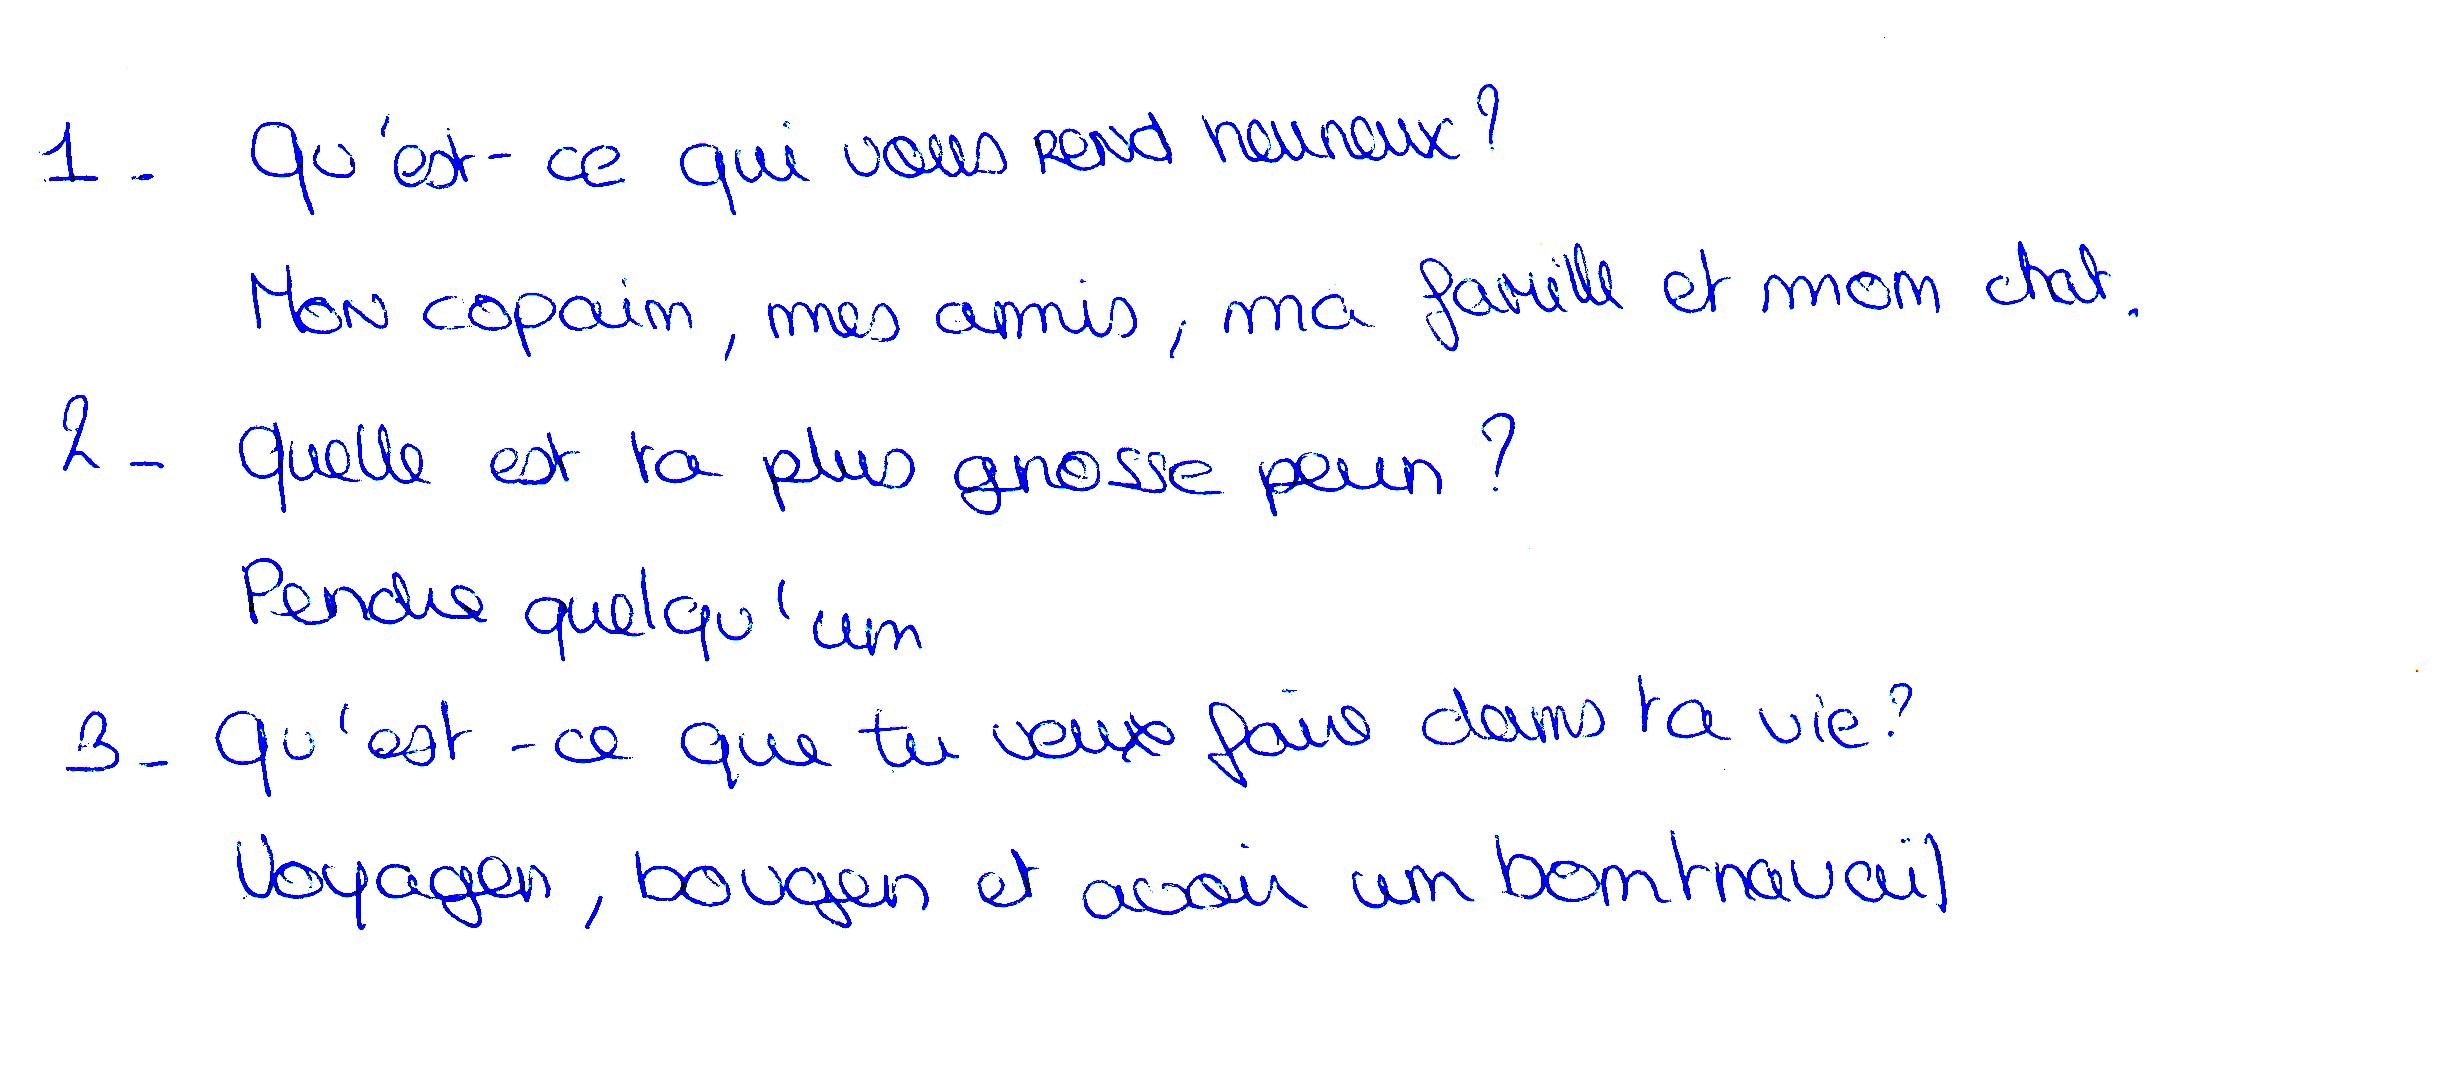 1 - Qu'est-ce qui vous rend heureux ?
Mon copain, mes amis, ma famille et mon chat.
2 - Quelle est ta plus grosse peur ?
Perdre quelqu'un
3 - Qu'est-ce que tu veux faire dans ta vie ?
Voyager, bouger et avoir un bon travail